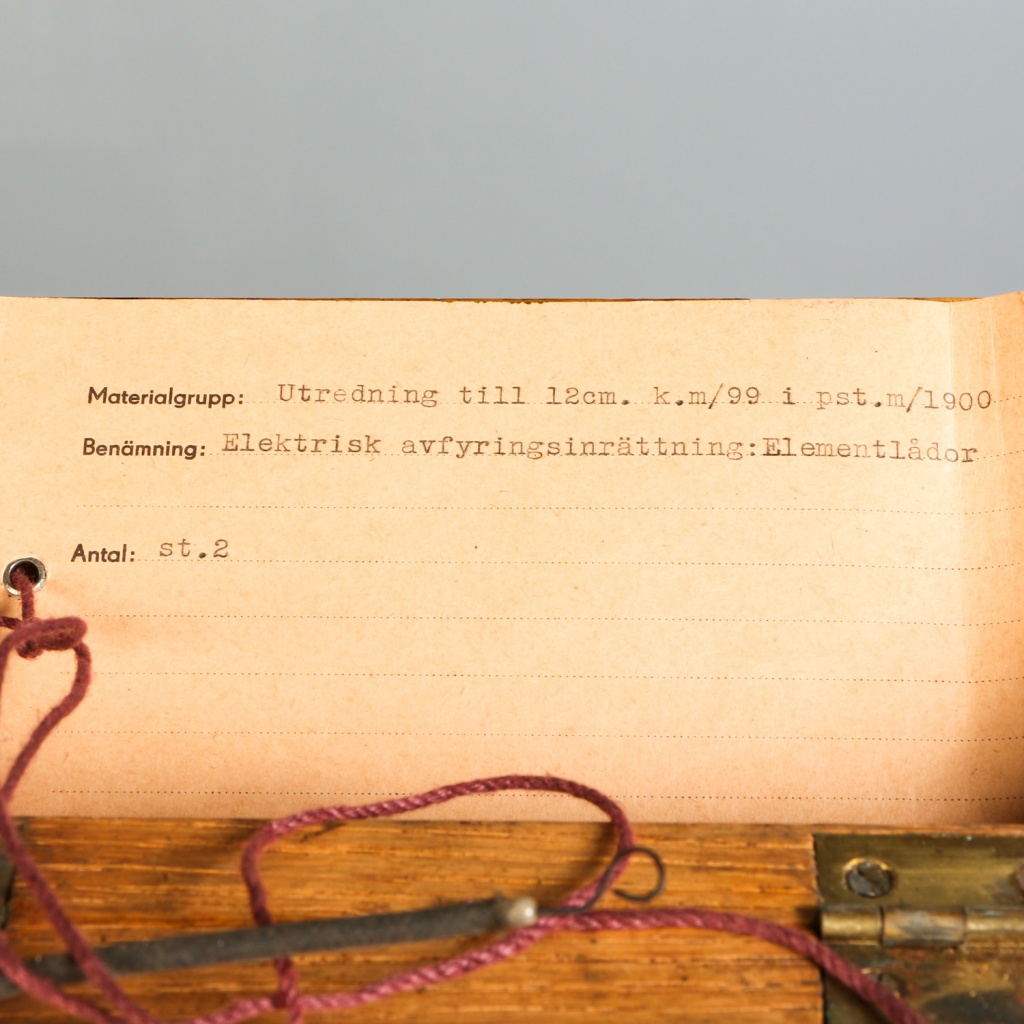 Materialgrupp: Utredning till 12cm. k.m/99 i pst.m/1900
Benämning: Elektrisk avfyringsinrättning:Elementlådor
Antal: st.2